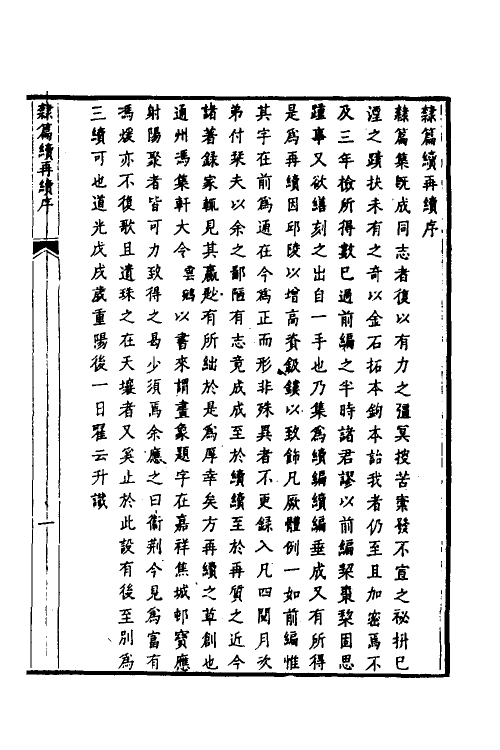 隸篇續再續序
隸篇集旣成同志者復以有力之彊冥搜苦索發不宣之祕拼巳
湮之蹟扶未有之奇以金石拓本鉤本詒我者仍至且加密焉不
及三年檢所得數巳過前編之半時諸君謬以前編棃棗棃固思
踵事又欲繕刻之出自一手也乃集爲續編續編垂成又有所得
是爲再續因邱陵以增高資鍛鏤以致飾凡厥體例一如前編惟
其字在前爲通在今爲正而形非殊異者不更録入凡四閱月次
弟付栞夫以余之鄙陋有志竟成成至於續續至於再質之近今
諸著錄家輒見其贏尠有所絀於是爲厚幸矣方再續之草創也
通州馮集軒大令雲鵷以書來謂畫象題字在嘉祥焦城邨寶應
射陽聚者皆可力致得之曷少須焉余應之曰衞荆今見爲富有
馮煖亦不復歌且遺珠之在天壤者又奚止於此設有後至別爲
三續可也道光戊戌歲重陽後一日翟云升識
隸篇續再續序
一